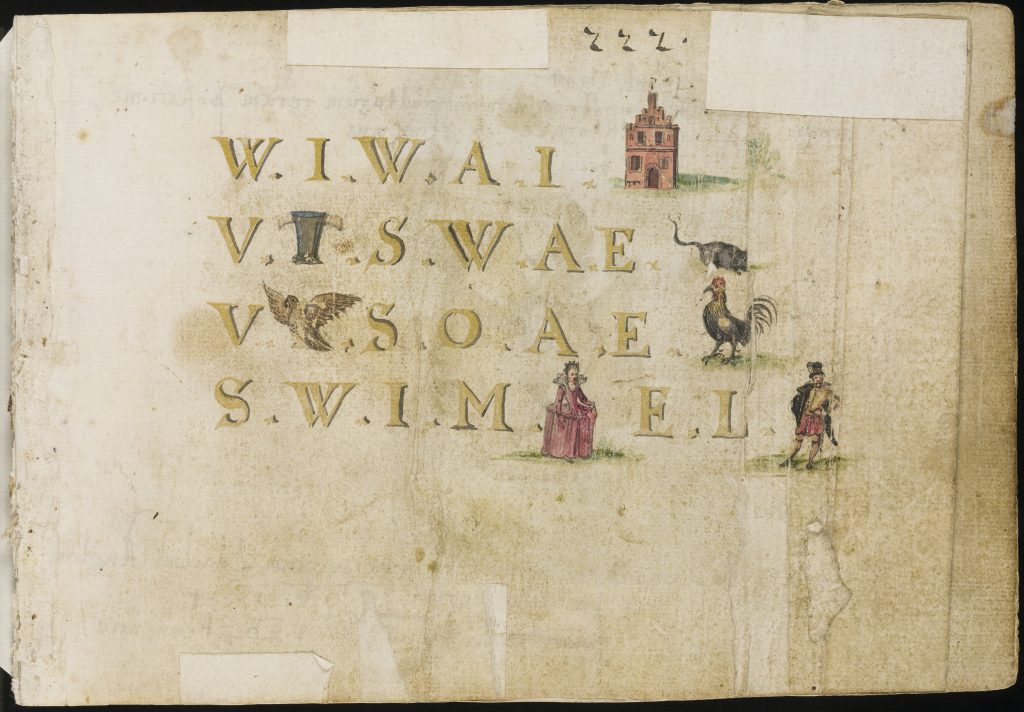 222.
W.I.W.A.I.
V. .S.W.A.E.
V. .S.O.A.E.
S.W.I.M. E.I.